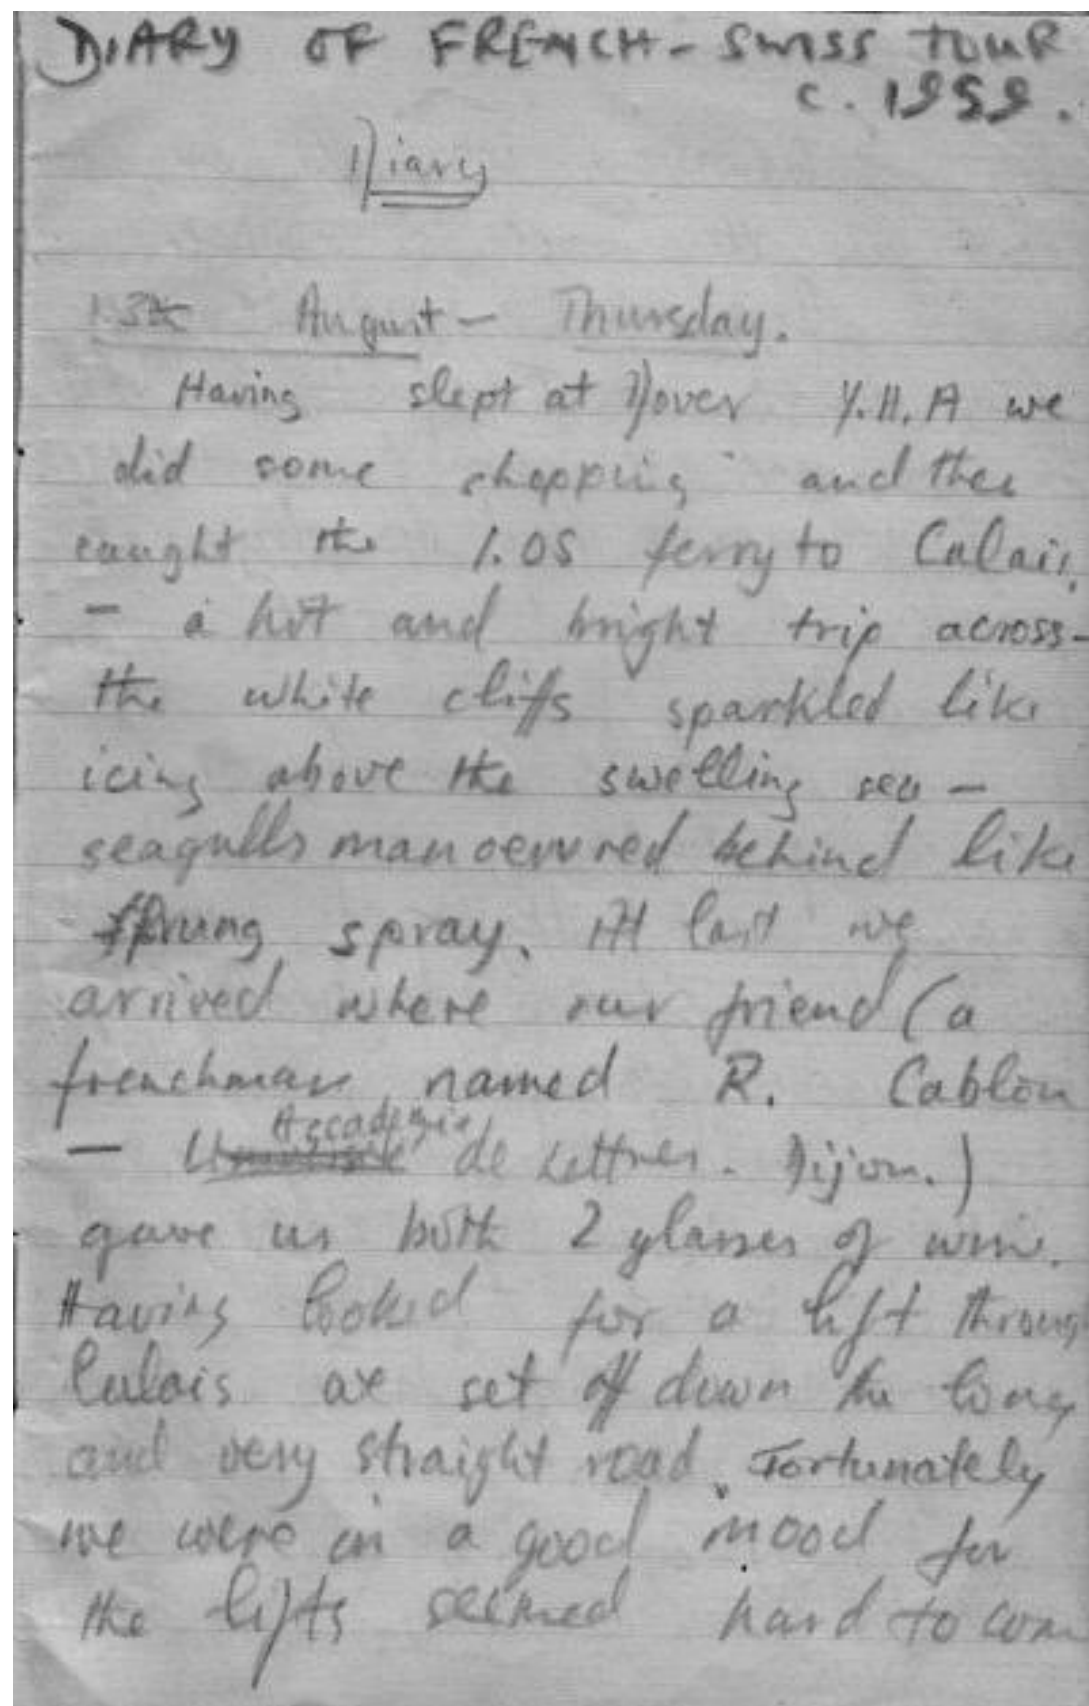 DIARY OF FRENCH - SWISS TOUR
c. 1959.
Diary
13th August - Thursday.
Having slept at Dover Y.H.A we
did some shopping and then
caught the 1.05 ferry to Calais,
- a hot and bright trip across -
the white cliffs sparkled like
icing above the swelling sea -
seagulls manoeuvred behind like
spray. At last we
arrived where our friend (a
frenchman named R. Cablon
Accademie
- de Lettres. Dijon.)
gave us both 2 glasses of wine.
Having looked for a lift throug
Calais we set off down the long
and very straight road. Fortunately
we were in a good mood for
the lifts seemed hard to com